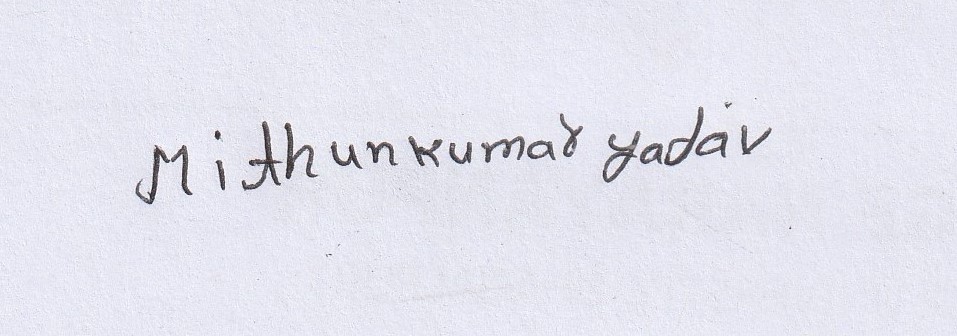 Mithunkumar yadav